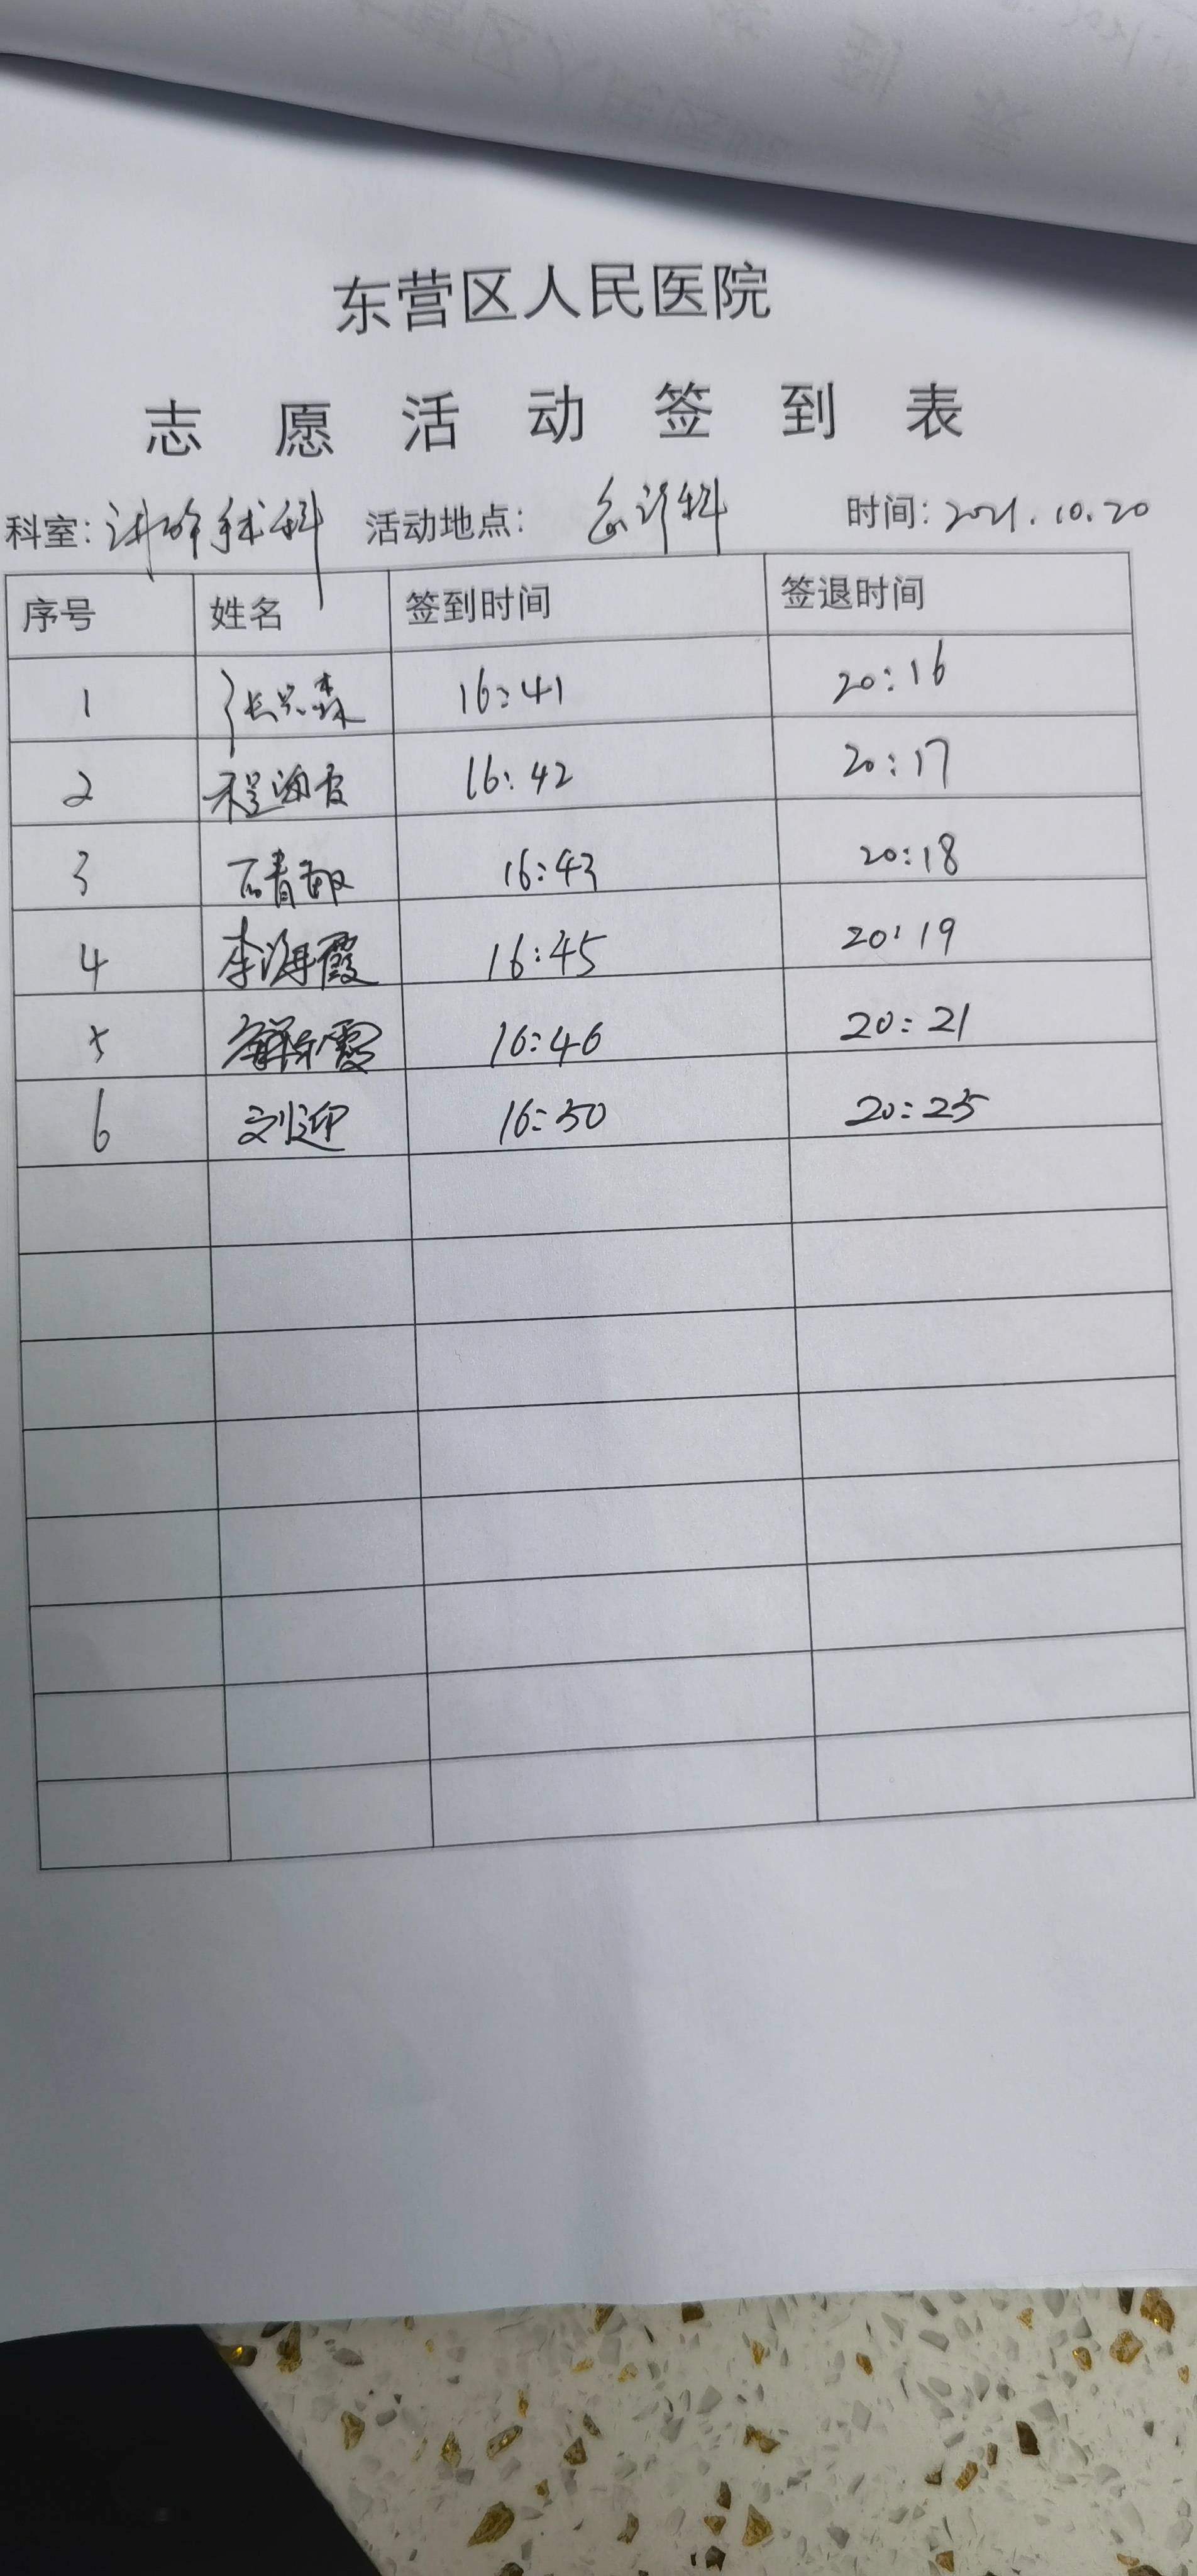 东营区人民医院
志愿活动签到表
科室: 科 活动地点: 急诊科 时间: 2021.10.20
序号 姓名 签到时间 签退时间
1 张兴森 16:41 20:16
2 程海 16:42 20:17
3 石青 16:43 20:18
4 李海霞 16:45 20:19
5 霞 16:46 20:21
6 刘迎 16:50 20:25